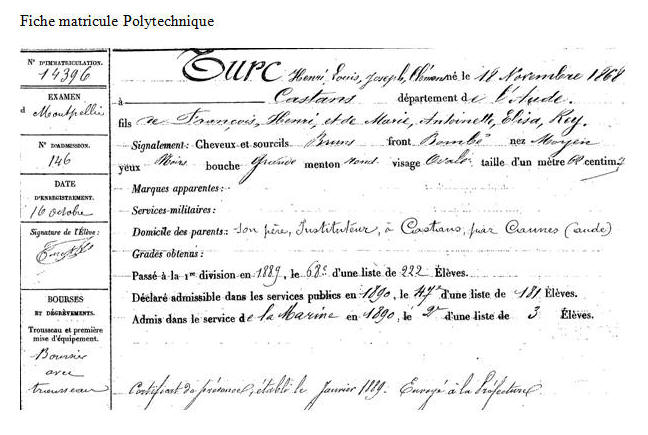 Fiche matricule Polytechnique
N° D'IMMATRICULATION.
14396
EXAMEN
d Montpellier
N° D'ADMISSION.
146
DATE
D'ENREGISTREMENT.
16 octobre
Signature de l'Élève :
BOURSES
ET DÉGRÈVEMENTS.
Trousseau et première
mise d'équipement.
Boursier
avec
trousseau
Turc Henri, Louis, Joseph, Clément né le 18 Novembre 1868
à Castans département de l'Aude.
fils de François, Henri, et de Marie, Antoinette, Elisa, Rey.
Signalement : Cheveux et sourcils Bruns front Bombé nez Moyen
yeux Noirs bouche Grande menton rond visage Ovale taille d'un mètre 62 centim
Marques apparentes :
Services militaires :
Domicile des parents : son père, Instituteur, à Castans, par Caunes (aude)
Grades obtenus :
Passé à la 1re division en 1889, le 68e d'une liste de 222 Élèves.
Déclaré admissible dans les services publics en 1890, le 47e d'une liste de 181 Élèves.
Admis dans le service de la Marine en 1890, le 2e d'une liste de 3 Élèves.
Certificat de présence, établi le Janvier 1889. Envoyé à la Préfecture